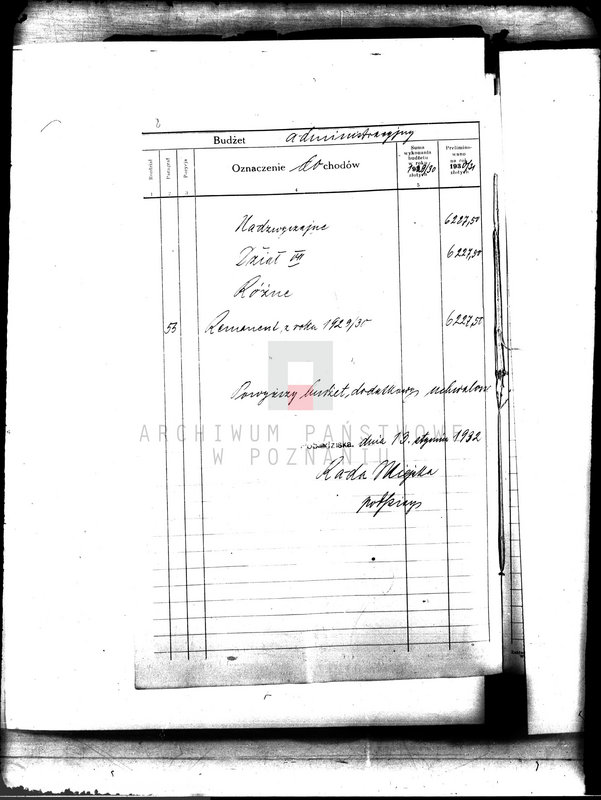 8
Budżet administracyjny
Rozdział
Paragraf
Pozycja
Oznaczenie dochodów
Suma wykonania budżetu w roku 1929/30 złotych
Prelimino-wano na rok 1930/31 złotych
1 2 3 4 5
Nadzwyczajne 6227,58
Dział VII 6227,58
Różne
53 Remanent z roku 1929/30 6227,58
Powyższy budżet dodatkowy uchwalono
ARCHIWUM PAŃSTWOWE
W POZNANIU
dnia 13. stycznia 1932
Rada Miejska
podpisy